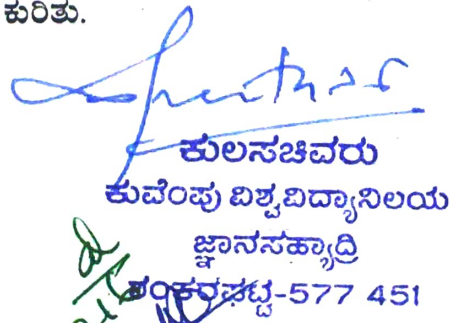 ಕುರಿತು.
ಕುಲಸಚಿವರು
ಕುವೆಂಪು ವಿಶ್ವವಿದ್ಯಾನಿಲಯ
ಜ್ಞಾನಸಹ್ಯಾದ್ರಿ
ಶಂಕರಘಟ್ಟ-577 451